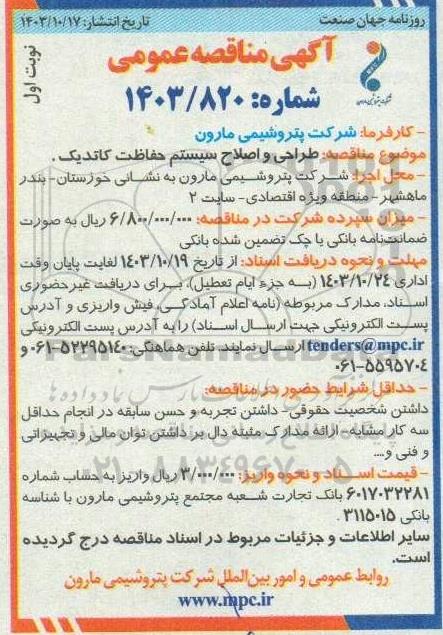 روزنامه جهان صنعت
تاریخ انتشار: ۱۴۰۳/۱۰/۱۷
نوبت اول
آگهی مناقصه عمومی
شماره: ۱۴۰۳/۸۲۰
- کارفرما: شرکت پتروشیمی مارون
موضوع مناقصه: طراحی و اصلاح سیستم حفاظت کاتدیک.
- محل اجرا: شرکت پتروشیمی مارون به نشانی خوزستان- بندر
ماهشهر- منطقه ویژه اقتصادی- سایت ۲
- میزان سپرده شرکت در مناقصه: ۶/۸۰۰/۰۰۰/۰۰۰ ریال به صورت
ضمانت‌نامه بانکی یا چک تضمین شده بانکی
مهلت و نحوه دریافت اسناد: از تاریخ ۱۴۰۳/۱۰/۱۹ لغایت پایان وقت
اداری ۱۴۰۳/۱۰/۲۴ (به جزء ایام تعطیل)، برای دریافت غیرحضوری
اسناد، مدارک مربوطه (نامه اعلام آمادگی، فیش واریزی و آدرس
پست الکترونیکی جهت ارسال اسناد) را به آدرس پست الکترونیکی
tenders@mpc.ir ارسال نمایند. تلفن هماهنگی: ۵۲۲۹۵۱۴۰-۰۶۱ و
۵۵۹۵۷۰۴-۰۶۱
- حداقل شرایط حضور در مناقصه:
داشتن شخصیت حقوقی- داشتن تجربه و حسن سابقه در انجام حداقل
سه کار مشابه- ارائه مدارک مثبته دال بر داشتن توان مالی و تجهیزاتی
و فنی و....
- قیمت اسناد و نحوه واریز: ۳/۰۰۰/۰۰۰ ریال واریز به حساب شماره
۶۰۱۷۰۳۲۲۸۱ بانک تجارت شعبه مجتمع پتروشیمی مارون با شناسه
بانکی ۳۱۱۵۰۱۵.
سایر اطلاعات و جزئیات مربوط در اسناد مناقصه درج گردیده
است.
روابط عمومی و امور بین‌الملل شرکت پتروشیمی مارون
www.mpc.ir
۰۲۱-۸۸۳۴۹۶۷۰-۵